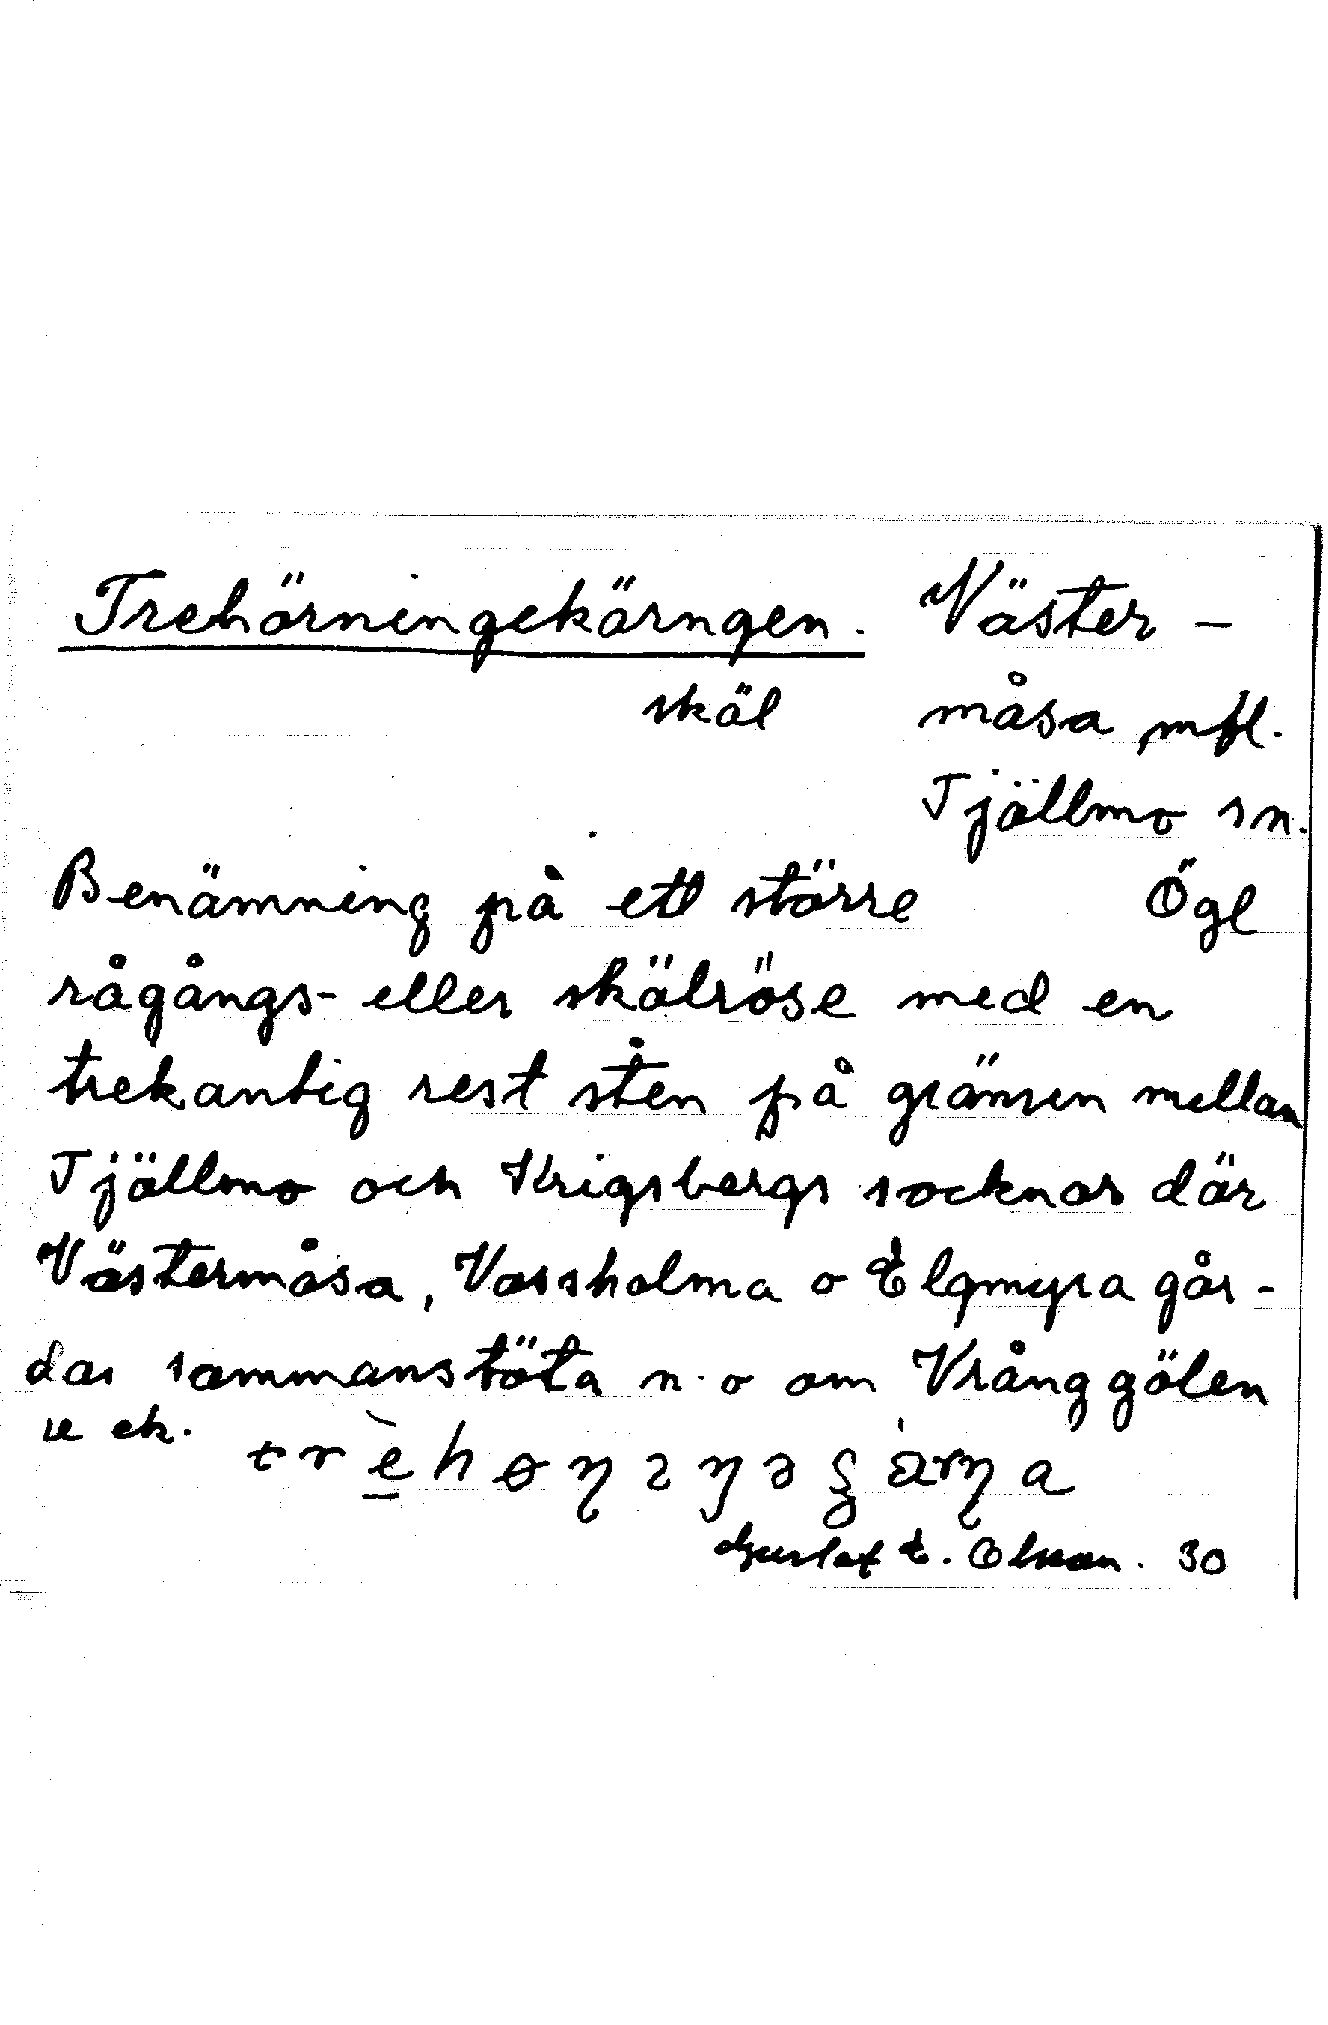 Trehörningekärngen. Väster-
skäl måsa mfl.
Tjällmo sn.
Benämning på ett större Ögl
rågångs- eller skälröse med en
trekantig rest sten på gränsen mellan
Tjällmo och Krigsbergs socknar där
Västermåsa, Vassholma o Elgmyra går-
dar sammanstöta n.o om Vrånggölen
se ek.
Gustaf E. Olsson. 30